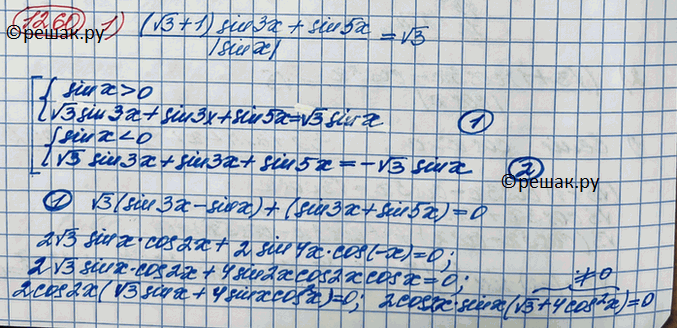 1260 1) (√3+1) sin3x + sin5x / |sinx| = √3
©решак.ру
[ { sinx>0
√3 sin3x + sin3x + sin5x = √3 sinx ①
{ sinx<0
√3 sin3x + sin3x + sin5x = -√3 sinx ②
©решак.ру
① √3(sin3x - sinx) + (sin3x + sin5x) = 0
2√3 sinx·cos2x + 2 sin4x·cos(-x) = 0;
2√3 sinx·cos2x + 4 sin2x cos2x cosx = 0; ≠0
2cos2x(√3 sinx + 4 sinx cos²x) = 0; 2cos2x·sinx(√3 + 4cos²x) = 0